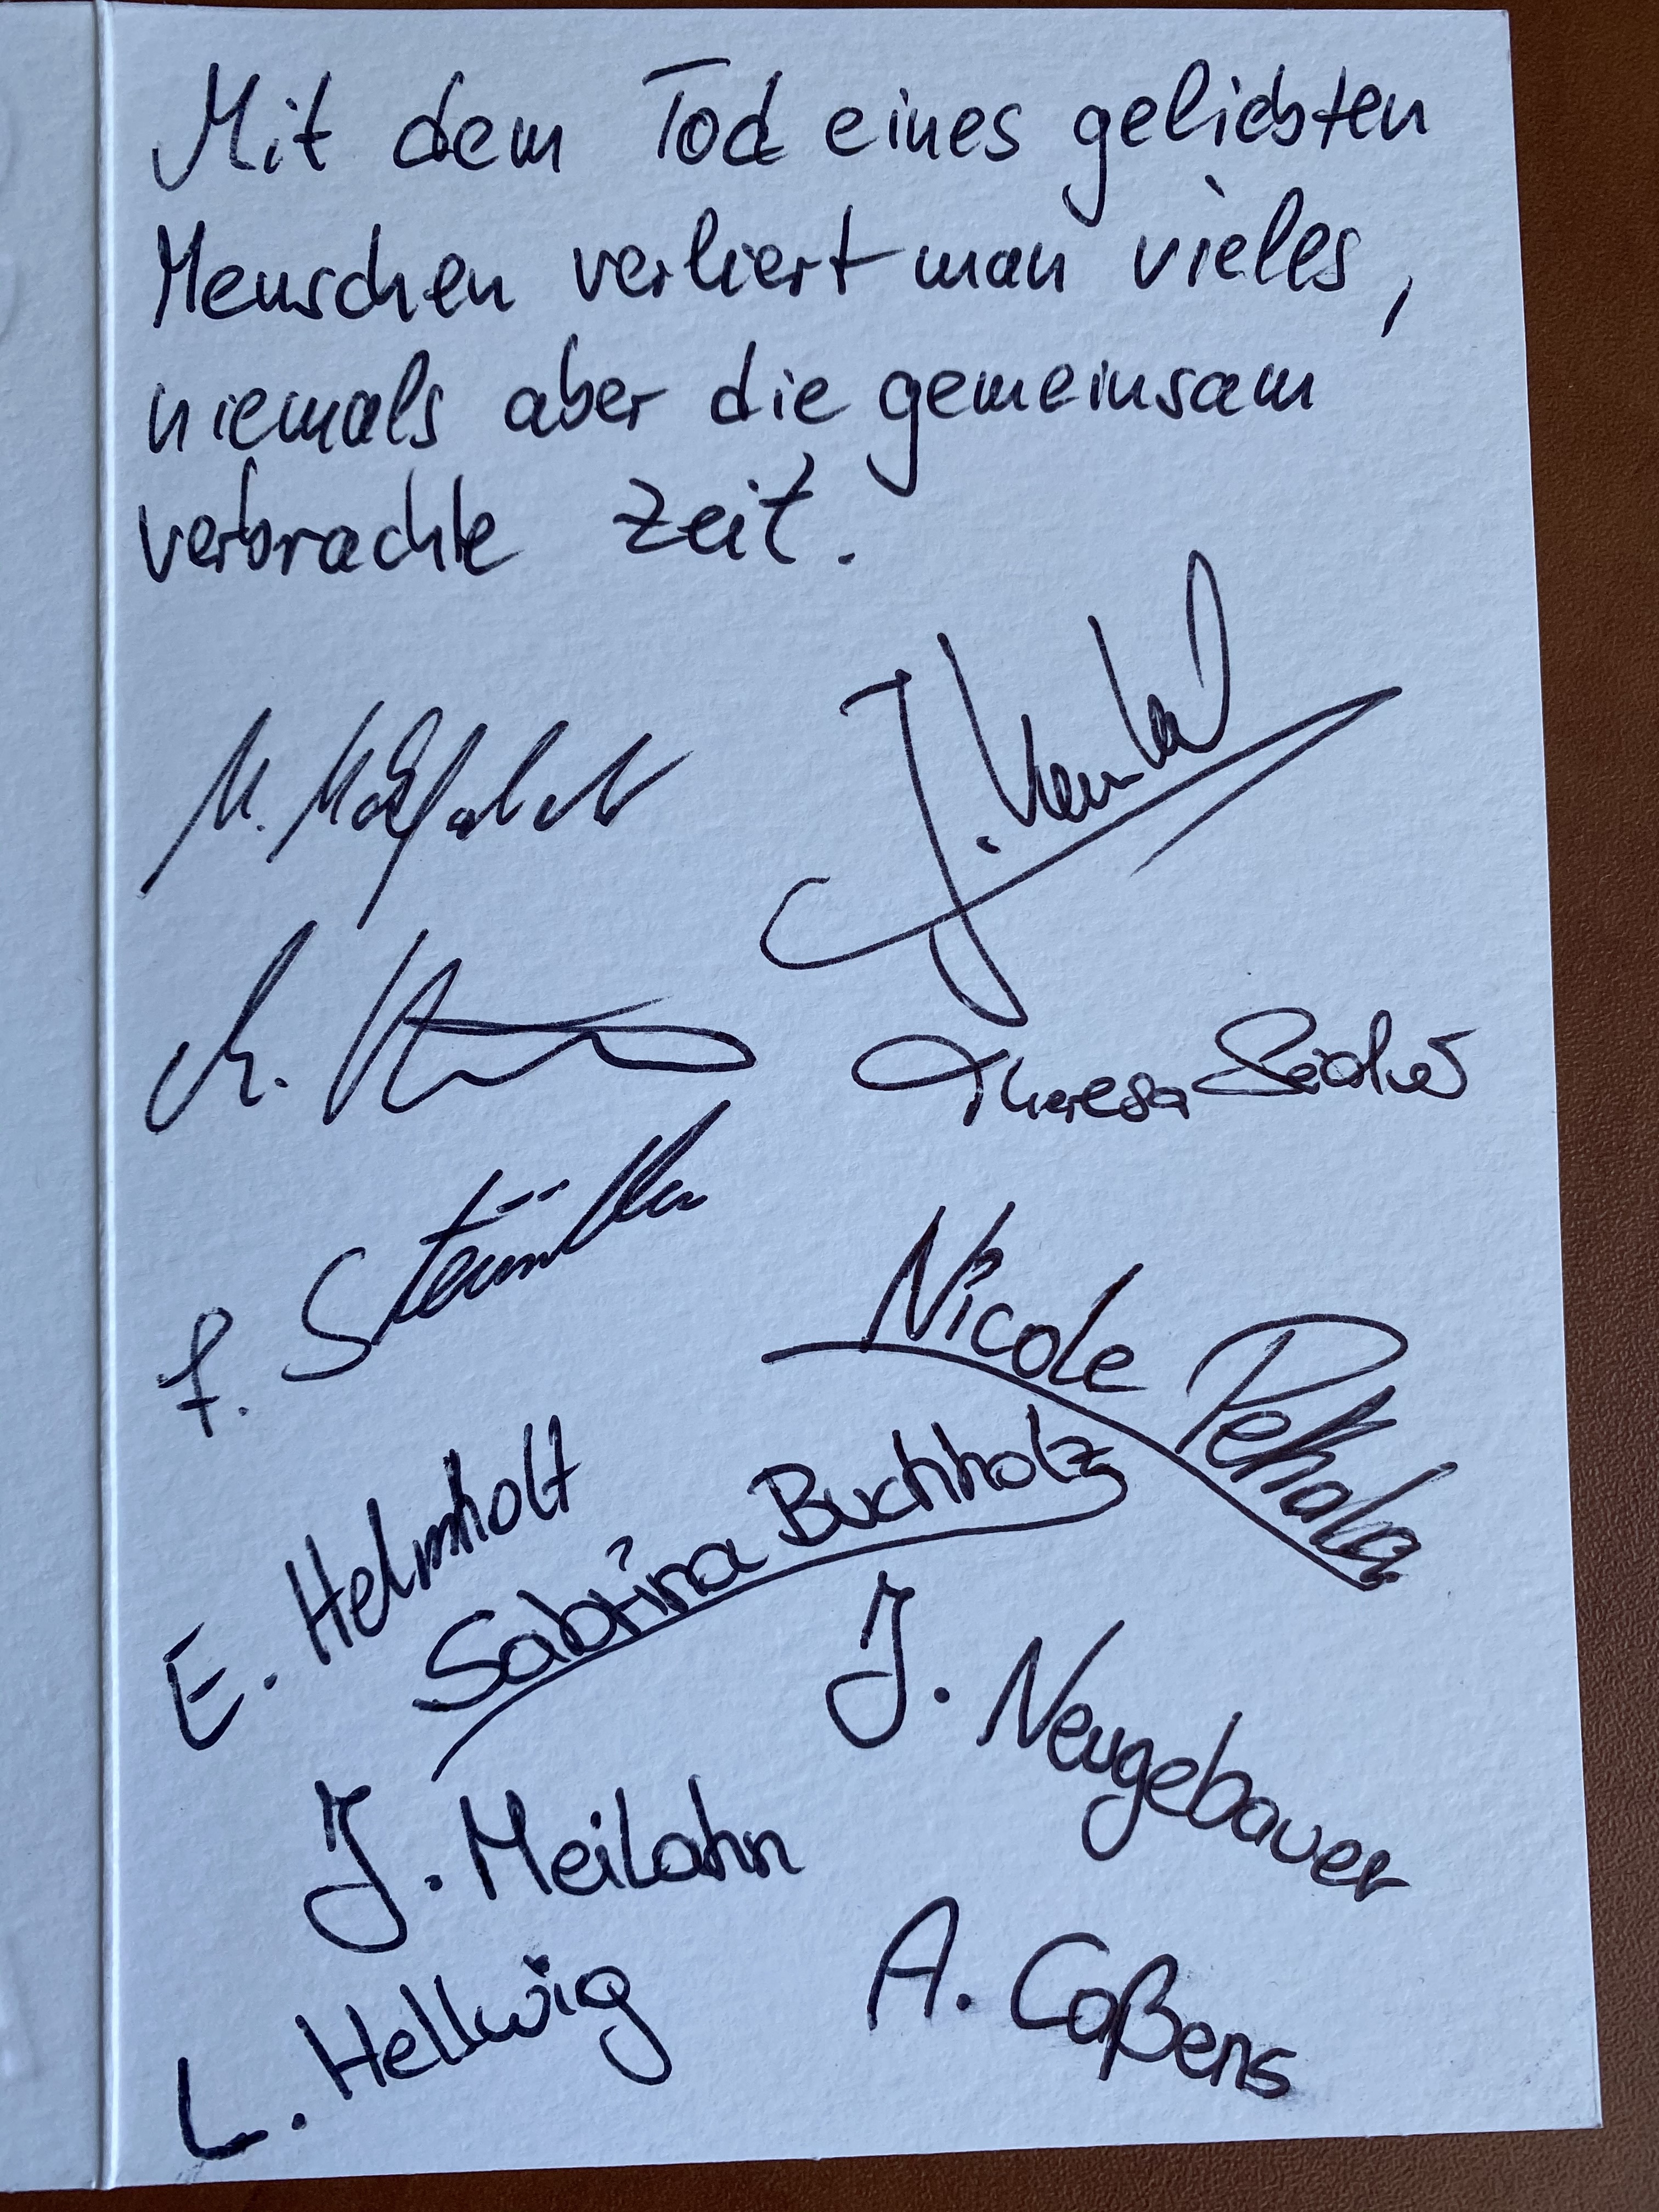 Mit dem Tod eines geliebten
Menschen verliert man vieles,
niemals aber die gemeinsam
verbrachte Zeit.
M.
J.
Theresa
F.
Nicole Pekhala
E. Helmholt
Sabrina Buchholz
J. Neugebauer
J. Meilahn
A. Coßens
L. Hellwig